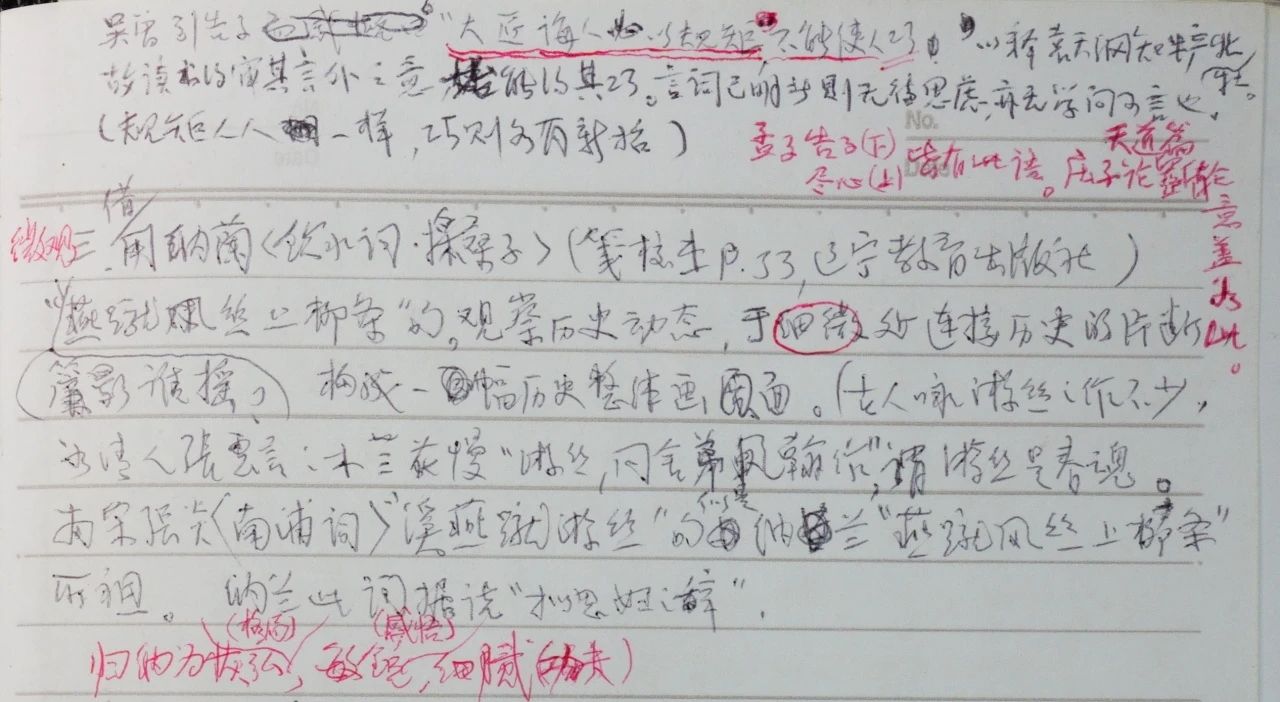 吴曾引告子 "大匠诲人必以规矩，不能使人巧"，以释袁天纲
故读书的审其言外之意 能得其巧。言词已明 则无待思虑，亦无学问可言也，
（规矩人人一样，巧则各有新招）
No.
孟子告子(下)
尽心(上)皆有此语。庄子论 天道篇
意盖如此。
微观三 借用纳兰〈饮水词·采桑子〉（笺校本P.33，辽宁教育出版社）
"燕蹴风丝上柳条"的，观察历史动态，于细微处连接历史的片断
簾影谁摇， 构成一幅历史整体画面。（古人咏游丝之作不少，
如清人张云：木兰花慢"游丝，同舍弟风翰作"，谓游丝是春魂。
南宋张炎〈南浦词〉"溪燕蹴游丝"的 似是 纳兰"燕蹴风丝上柳条"
所祖。 纳兰此词据说"拟思妇之辞"。
（格局） （感悟）
归纳为恢弘，敏锐，细腻（功夫）